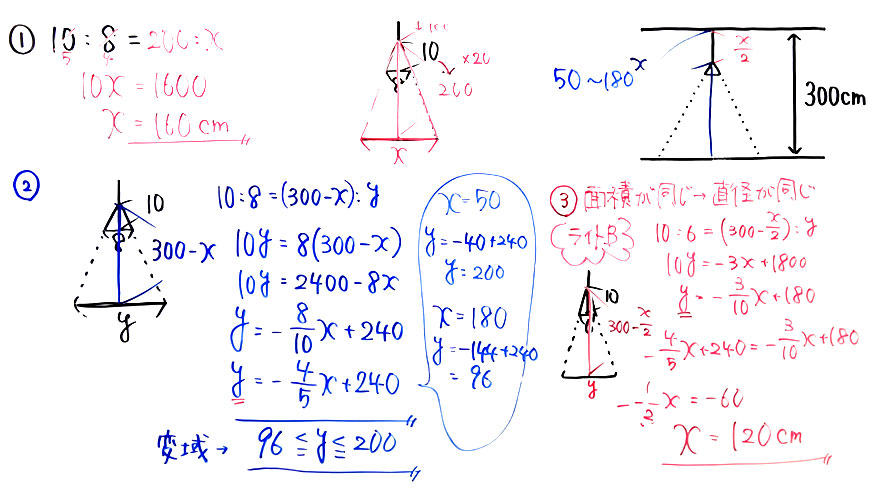 ① 10:8=200:x
5 4
10x=1600
x=160cm
10
×20
200
8
x
50~180
x
x/2
300cm
②
10
8
300-x
y
10:8=(300-x):y
10y=8(300-x)
10y=2400-8x
y=-8/10x+240
y=-4/5x+240
変域→ 96≦y≦200
x=50
y=-40+240
y=200
x=180
y=-144+240
=96
③ 面積が同じ→直径が同じ
ライトB
10:6=(300-x/2):y
10y=-3x+1800
y=-3/10x+180
10
300-x/2
y
-4/5x+240=-3/10x+180
-1/2x=-60
x=120cm